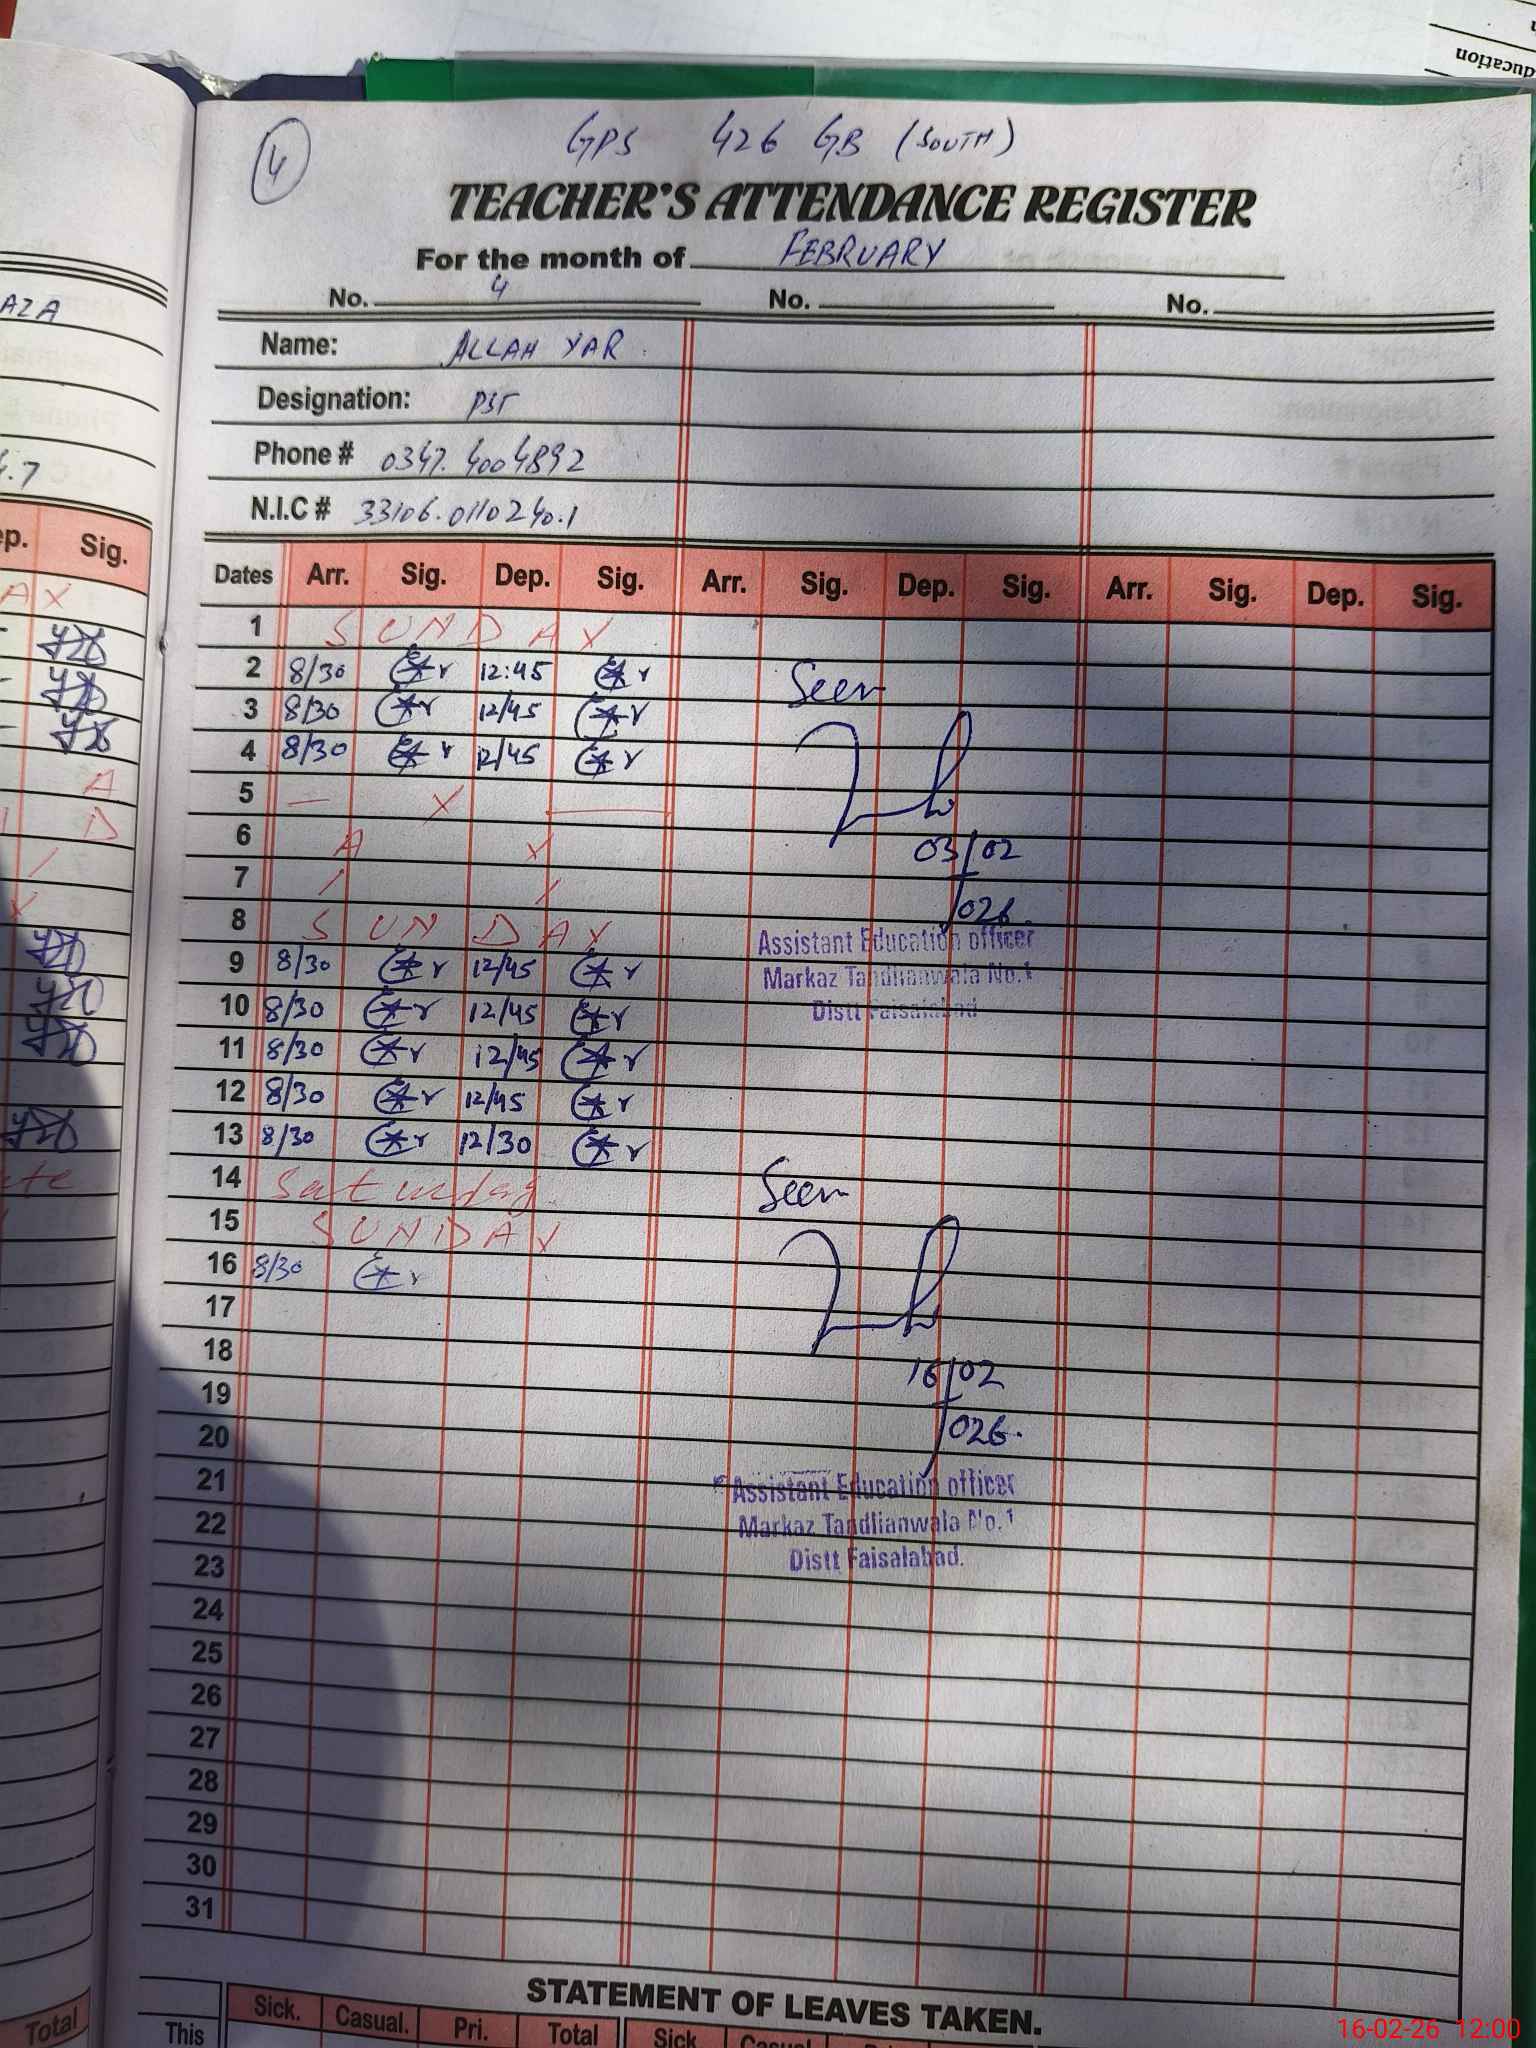 ducation
GPS 426 GB (SOUTH)
4
TEACHER'S ATTENDANCE REGISTER
For the month of FEBRUARY
No. 4 No. No.
Name: ALLAH YAR
Designation: PST
Phone # 0347.4004892
N.I.C # 33106.0110240.1
AZA
4.7
ep. Sig.
Dates Arr. Sig. Dep. Sig. Arr. Sig. Dep. Sig. Arr. Sig. Dep. Sig.
1 SUNDAY
2 8/30 12:45 Seen
3 8/30 12/45
4 8/30 12/45
5 — X —
6 A X 03/02
7 / /
026
8 SUNDAY
Assistant Education officer
9 8/30 12/45
Markaz Tandlianwala No.1
10 8/30 12/45
Distt Faisalabad
11 8/30 12/45
12 8/30 12/45
13 8/30 12/30
14 Saturday Seen
15 SUNDAY
16 8/30
17
18 16/02
19
026.
20
21 Assistant Education officer
22 Markaz Tandlianwala No.1
23 Distt Faisalabad.
24
25
26
27
28
29
30
31
STATEMENT OF LEAVES TAKEN.
Sick. Casual. Pri. Total Sick
Total
This
16-02-26 12:00